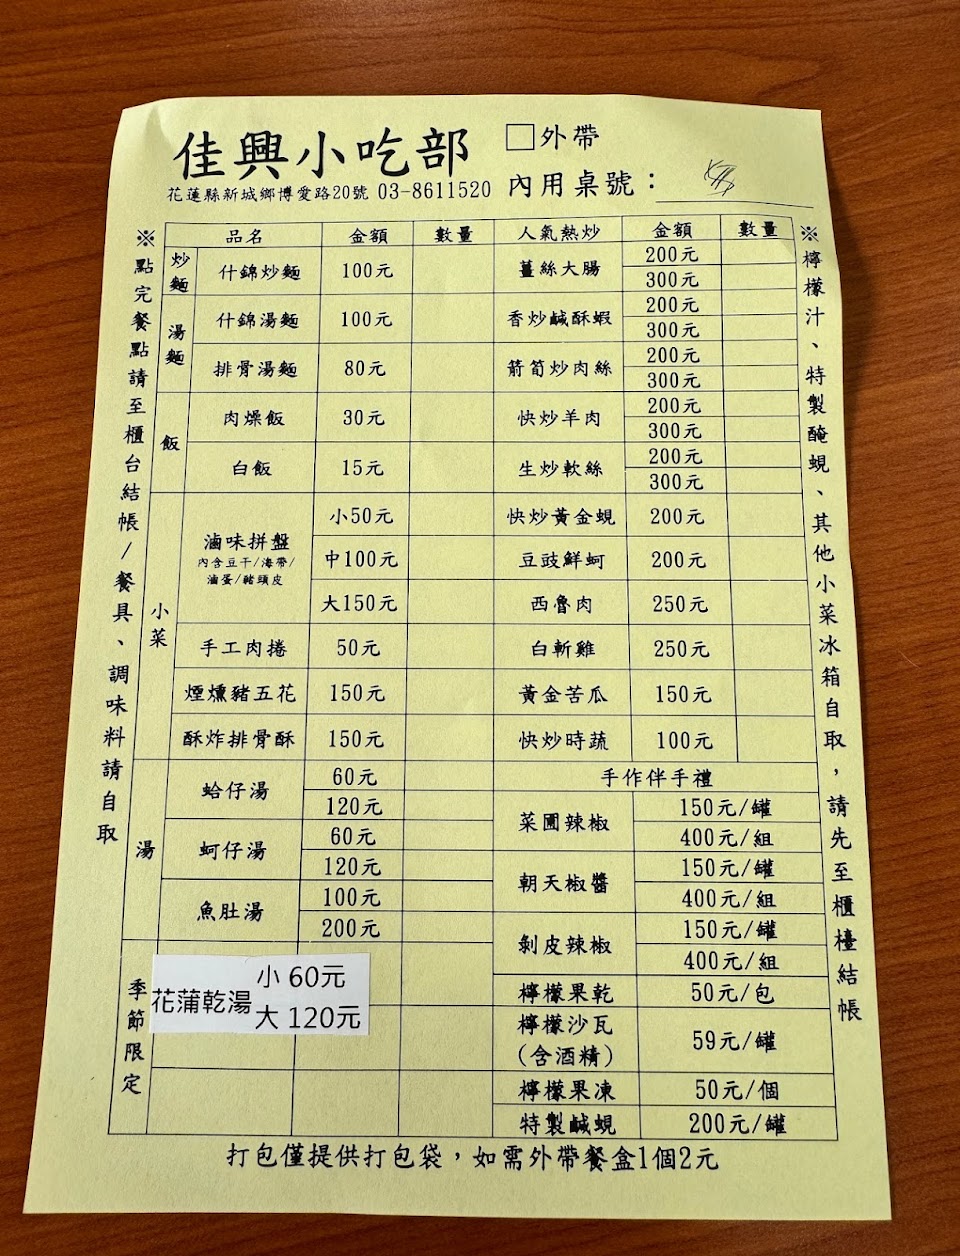 佳興小吃部
□外帶
花蓮縣新城鄉博愛路20號 03-8611520
內用桌號：
※點完餐點請至櫃台結帳/餐具、調味料請自取
品名 金額 數量
炒麵
什錦炒麵 100元
湯麵
什錦湯麵 100元
排骨湯麵 80元
飯
肉燥飯 30元
白飯 15元
小菜
滷味拼盤
內含豆干/海帶/
滷蛋/豬頭皮
小50元
中100元
大150元
手工肉捲 50元
煙燻豬五花 150元
酥炸排骨酥 150元
湯
蛤仔湯 60元
120元
蚵仔湯 60元
120元
魚肚湯 100元
200元
季節限定
花蒲乾湯
小 60元
大 120元
人氣熱炒 金額 數量
薑絲大腸 200元
300元
香炒鹹酥蝦 200元
300元
箭筍炒肉絲 200元
300元
快炒羊肉 200元
300元
生炒軟絲 200元
300元
快炒黃金蜆 200元
豆豉鮮蚵 200元
西魯肉 250元
白斬雞 250元
黃金苦瓜 150元
快炒時蔬 100元
手作伴手禮
菜圃辣椒 150元/罐
400元/組
朝天椒醬 150元/罐
400元/組
剝皮辣椒 150元/罐
400元/組
檸檬果乾 50元/包
檸檬沙瓦
(含酒精)
59元/罐
檸檬果凍 50元/個
特製鹹蜆 200元/罐
※檸檬汁、特製醃蜆、其他小菜冰箱自取，請先至櫃檯結帳
打包僅提供打包袋，如需外帶餐盒1個2元